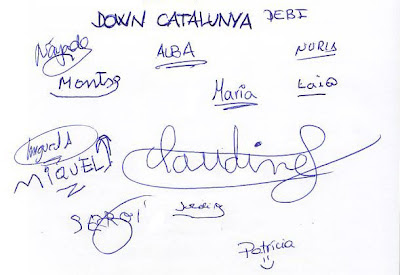 DOWN CATALUNYA DEBI
Nayade ALBA NURIA
Montse Maria Laia
Miquel A
MIQUEL Claudine
SERGI
Patricia